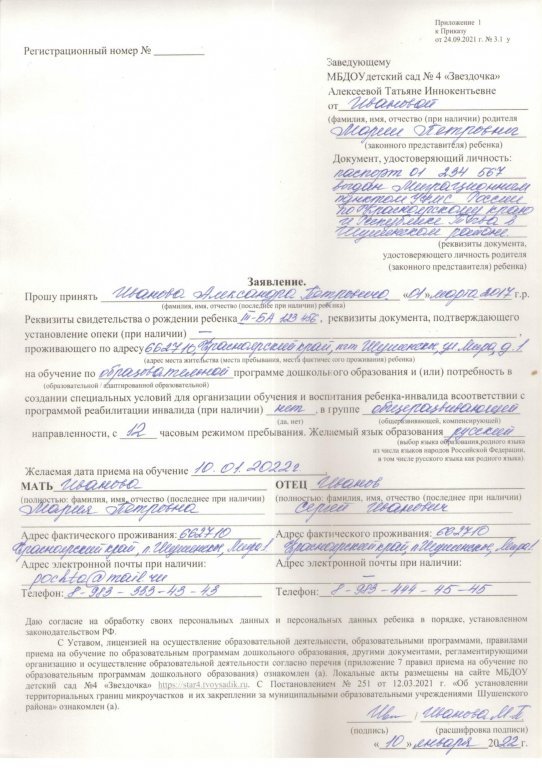 Приложение 1
к Приказу
от 24.09.2021 г. № 3.1 у
Регистрационный номер № ________
Заведующему
МБДОУдетский сад № 4 «Звездочка»
Алексеевой Татьяне Иннокентьевне
от Ивановой
(фамилия, имя, отчество (при наличии) родителя
Марии Петровны
(законного представителя) ребенка)
Документ, удостоверяющий личность:
паспорт 01 234 567
выдан Миграционным
пунктом УФМС России
по Красноярскому краю
и Республике Тыва в
Шушенском районе.
(реквизиты документа,
удостоверяющего личность родителя
(законного представителя) ребенка)
Заявление.
Прошу принять Иванова Александра Петровича «01» марта 2017 г.р.
(фамилия, имя, отчество (последнее при наличии) ребенка)
Реквизиты свидетельства о рождении ребенка III-БА 123 456, реквизиты документа, подтверждающего
установление опеки (при наличии) —,
проживающего по адресу 662710, Красноярский край, пгт Шушенское, ул. Мира, д. 1
(адрес места жительства (места пребывания, места фактического проживания) ребенка)
на обучение по образовательной программе дошкольного образования и (или) потребность в
(образовательной / адаптированной образовательной)
создании специальных условий для организации обучения и воспитания ребенка-инвалида всоответствии с
программой реабилитации инвалида (при наличии) нет, в группе общеразвивающей
(да, нет) (общеразвивающей, компенсирующей)
направленности, с 12 часовым режимом пребывания. Желаемый язык образования русский
(выбор языка образования,родного языка
из числа языков народов Российской Федерации,
в том числе русского языка как родного языка).
Желаемая дата приема на обучение 10.01.2022г
МАТЬ Иванова ОТЕЦ Иванов
(полностью: фамилия, имя, отчество (последнее при наличии) (полностью: фамилия, имя, отчество (последнее при наличии)
Мария Петровна Сергей Иванович
Адрес фактического проживания: 662710 Адрес фактического проживания: 662710
Красноярский край, п. Шушенское, Мира 1 Красноярский край, п. Шушенское, Мира 1
Адрес электронной почты при наличии: Адрес электронной почты при наличии:
pochta@mail.ru —
Телефон: 8-983-333-43-43 Телефон: 8-983-444-45-45
Даю согласие на обработку своих персональных данных и персональных данных ребенка в порядке, установленном
законодательством РФ.
С Уставом, лицензией на осуществление образовательной деятельности, образовательными программами, правилами
приема на обучение по образовательным программам дошкольного образования, другими документами, регламентирующими
организацию и осуществление образовательной деятельности согласно перечня (приложение 7 правил приема на обучение по
образовательным программам дошкольного образования) ознакомлен (а). Локальные акты размещены на сайте МБДОУ
детский сад №4 «Звездочка» https://star4.tvoysadik.ru. С Постановлением № 251 от 12.03.2021 г. «Об установлении
территориальных границ микроучастков и их закреплении за муниципальными образовательными учреждениями Шушенского
района» ознакомлен (а).
Ив / Иванова М.П.
(подпись) (расшифровка подписи)
«10» января 2022 г.